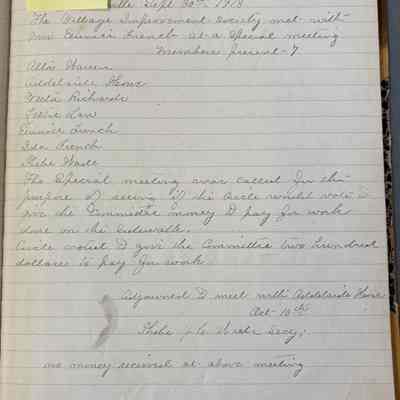 ville Sept 30th 1918
The Village Improvement Society met with
Mrs Eunice French at a Special meeting
Members present - 7
Alta Warren
Addelaide Howe
Neeta Richards
Eunice French
Ida French
Phebe Wade
The Special meeting was called for the
purpose of seeing if the Circle would vote to
give the Committee money to pay for work
done on the sidewalk.
Circle voted to give the Committee two hundred
dollars to pay for work.
Adjourned to meet with Addelaide Howe
Oct 10th
Phebe Wade Secy,
no money received at above meeting